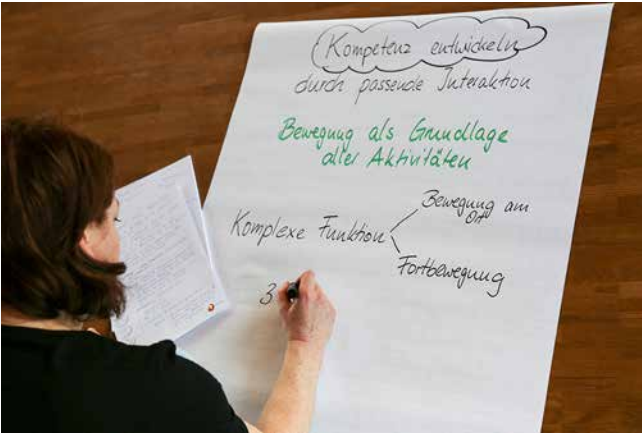 Kompetenz entwickeln
durch passende Interaktion
Bewegung als Grundlage
aller Aktivitäten
Komplexe Funktion
Bewegung am
Ort
Fortbewegung
3